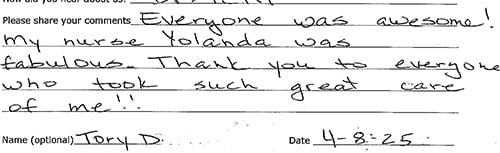 Please share your comments Everyone was awesome!
My nurse Yolanda was
fabulous. Thank you to everyone
who took such great care
of me!!
Name (optional) Tory D. Date 4-8-25